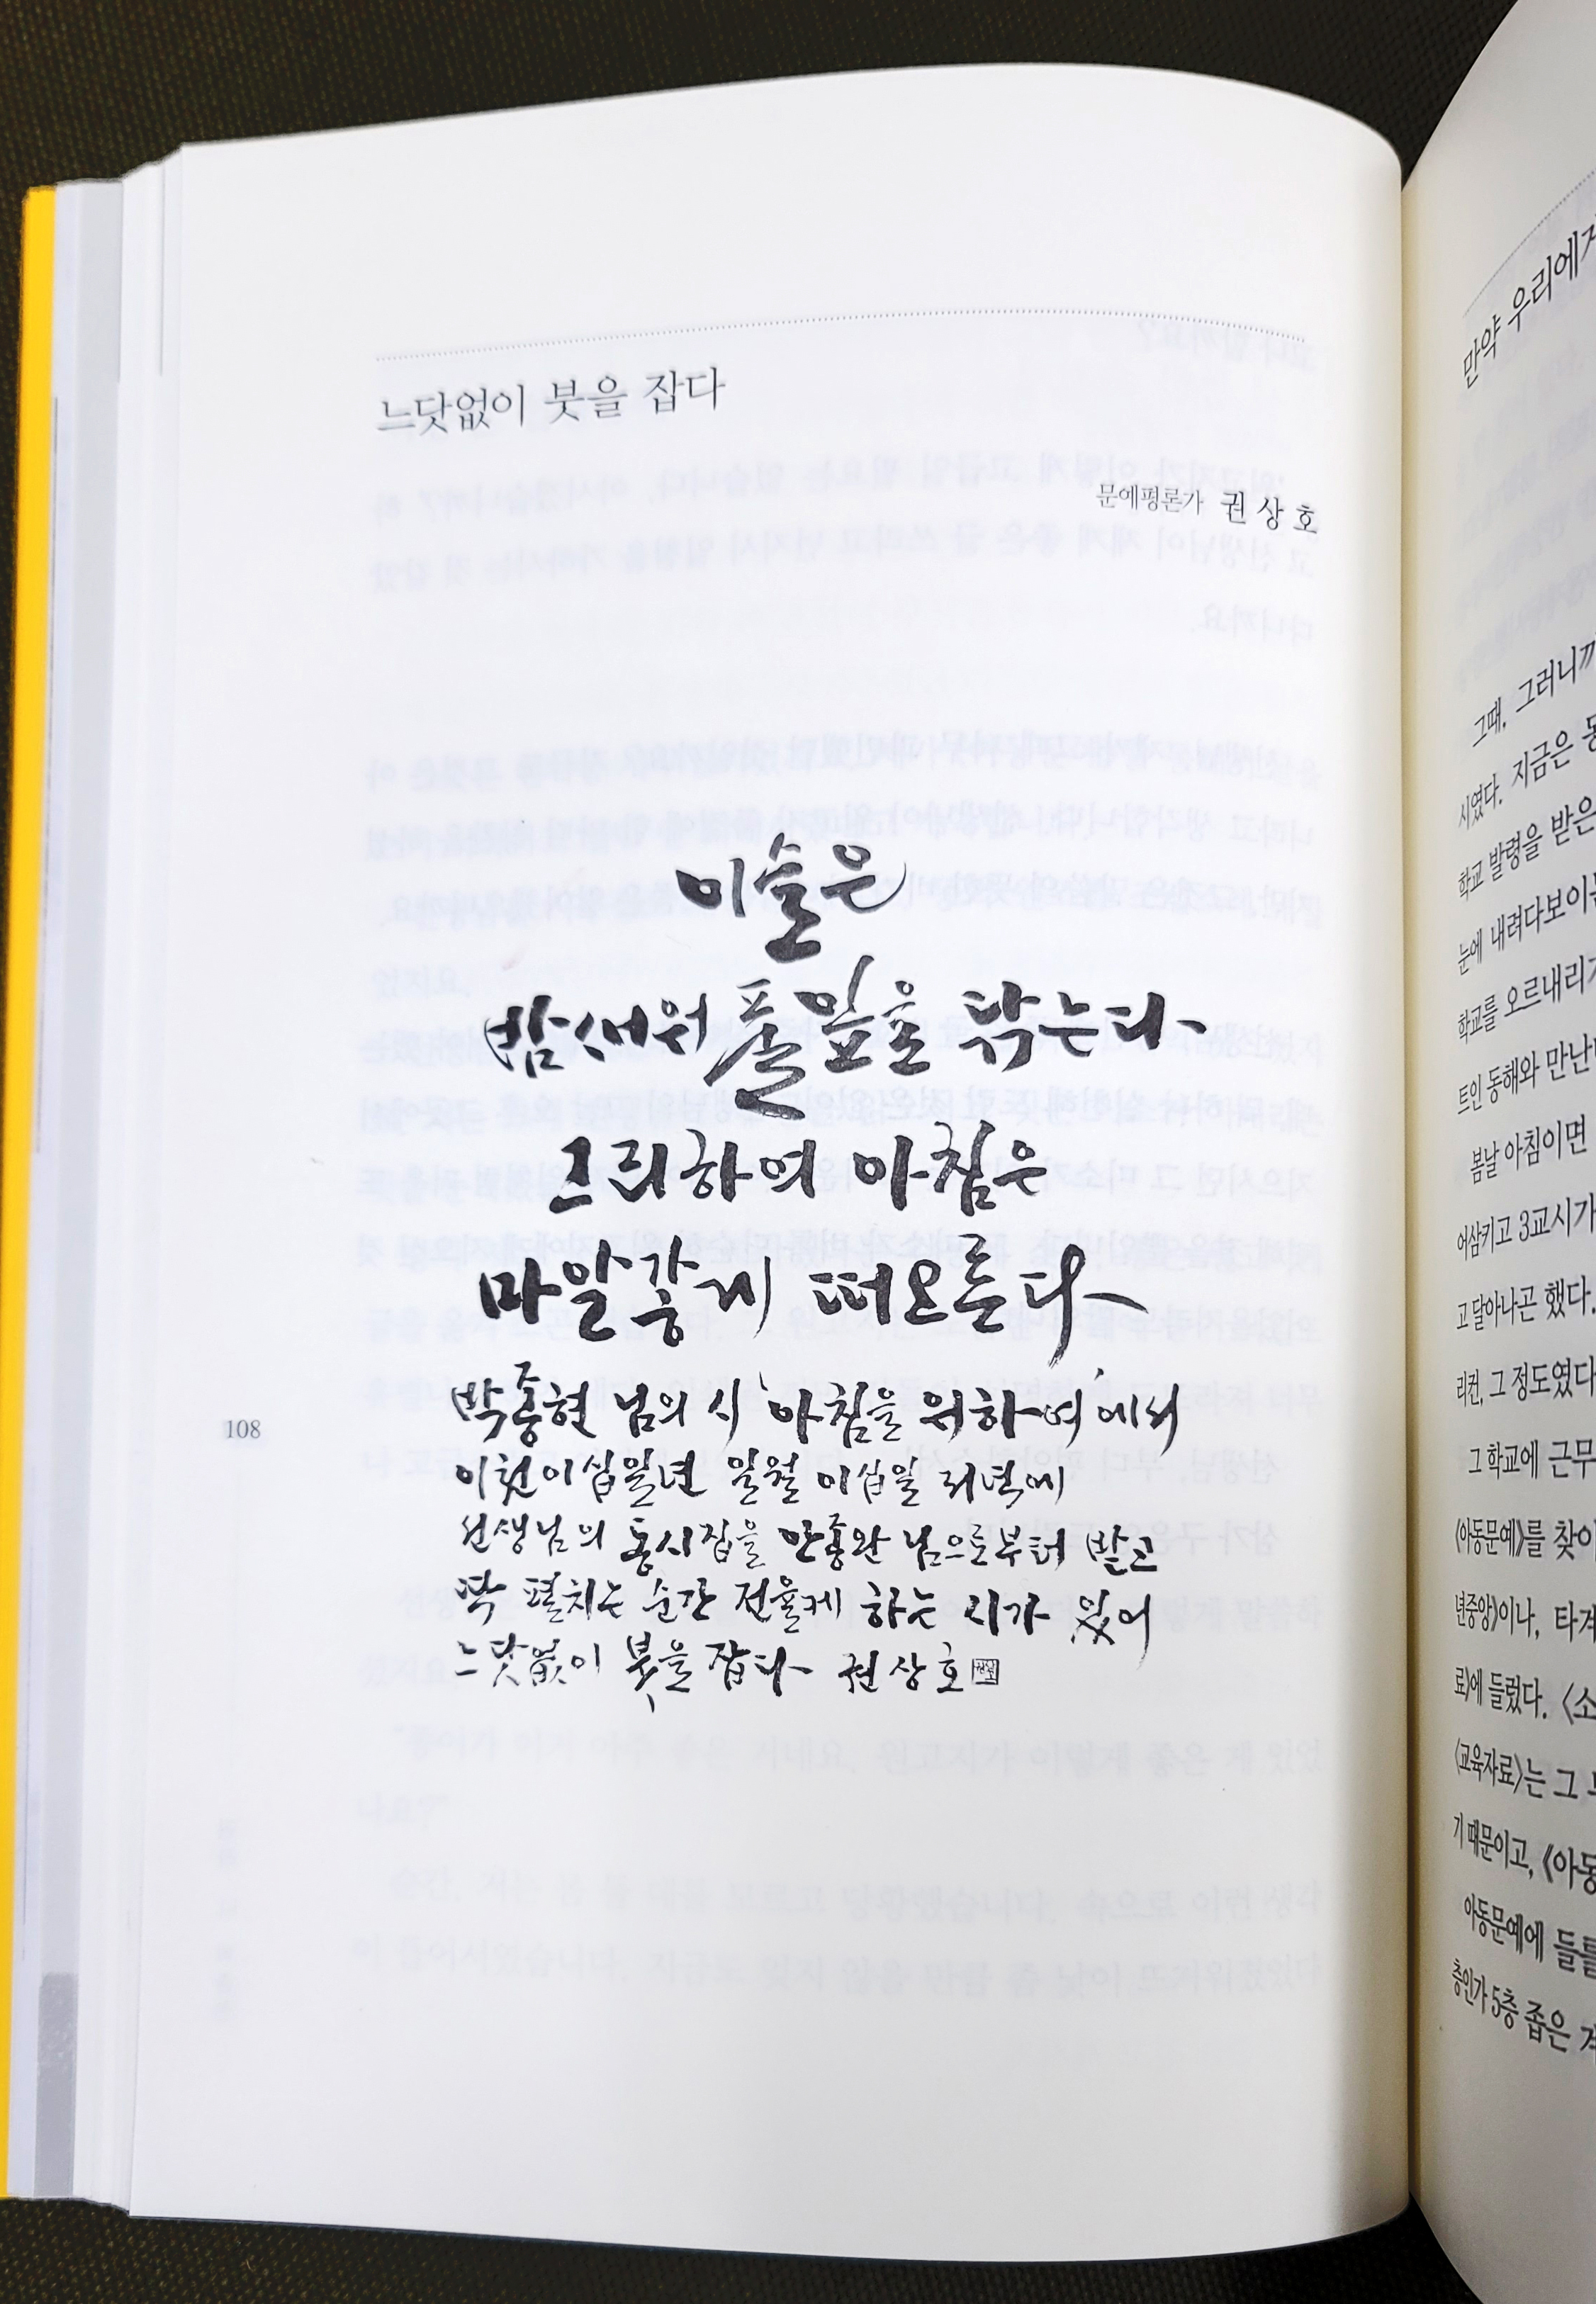 느닷없이 붓을 잡다
문예평론가 권상호
이슬은
밤새워 풀잎을 닦는다
그리하여 아침은
마알갛게 떠오른다
박종현 님의 시 '아침을 위하여'에서
이천이십일년 일월 이십일 저녁에
선생님의 동시집을 안종완 님으로부터 받고
딱 펼치는 순간 전율케 하는 시가 있어
느닷없이 붓을 잡다 권상호
108
만약 우리에게
그때, 그러니까
시였다. 지금은
학교 발령을 받은
눈에 내려다보이는
학교를 오르내리
트인 동해와 만난
봄날 아침이면
어삼키고 3교시가
고 달아나곤 했다.
리컨, 그 정도였다
그 학교에 근무
《아동문예》를 찾아
년중앙》이나, 타
료》에 들렀다. 《소
《교육자료》는 그
기 때문이고, 《아동
아동문예에 들를
층인가 5층 좁은